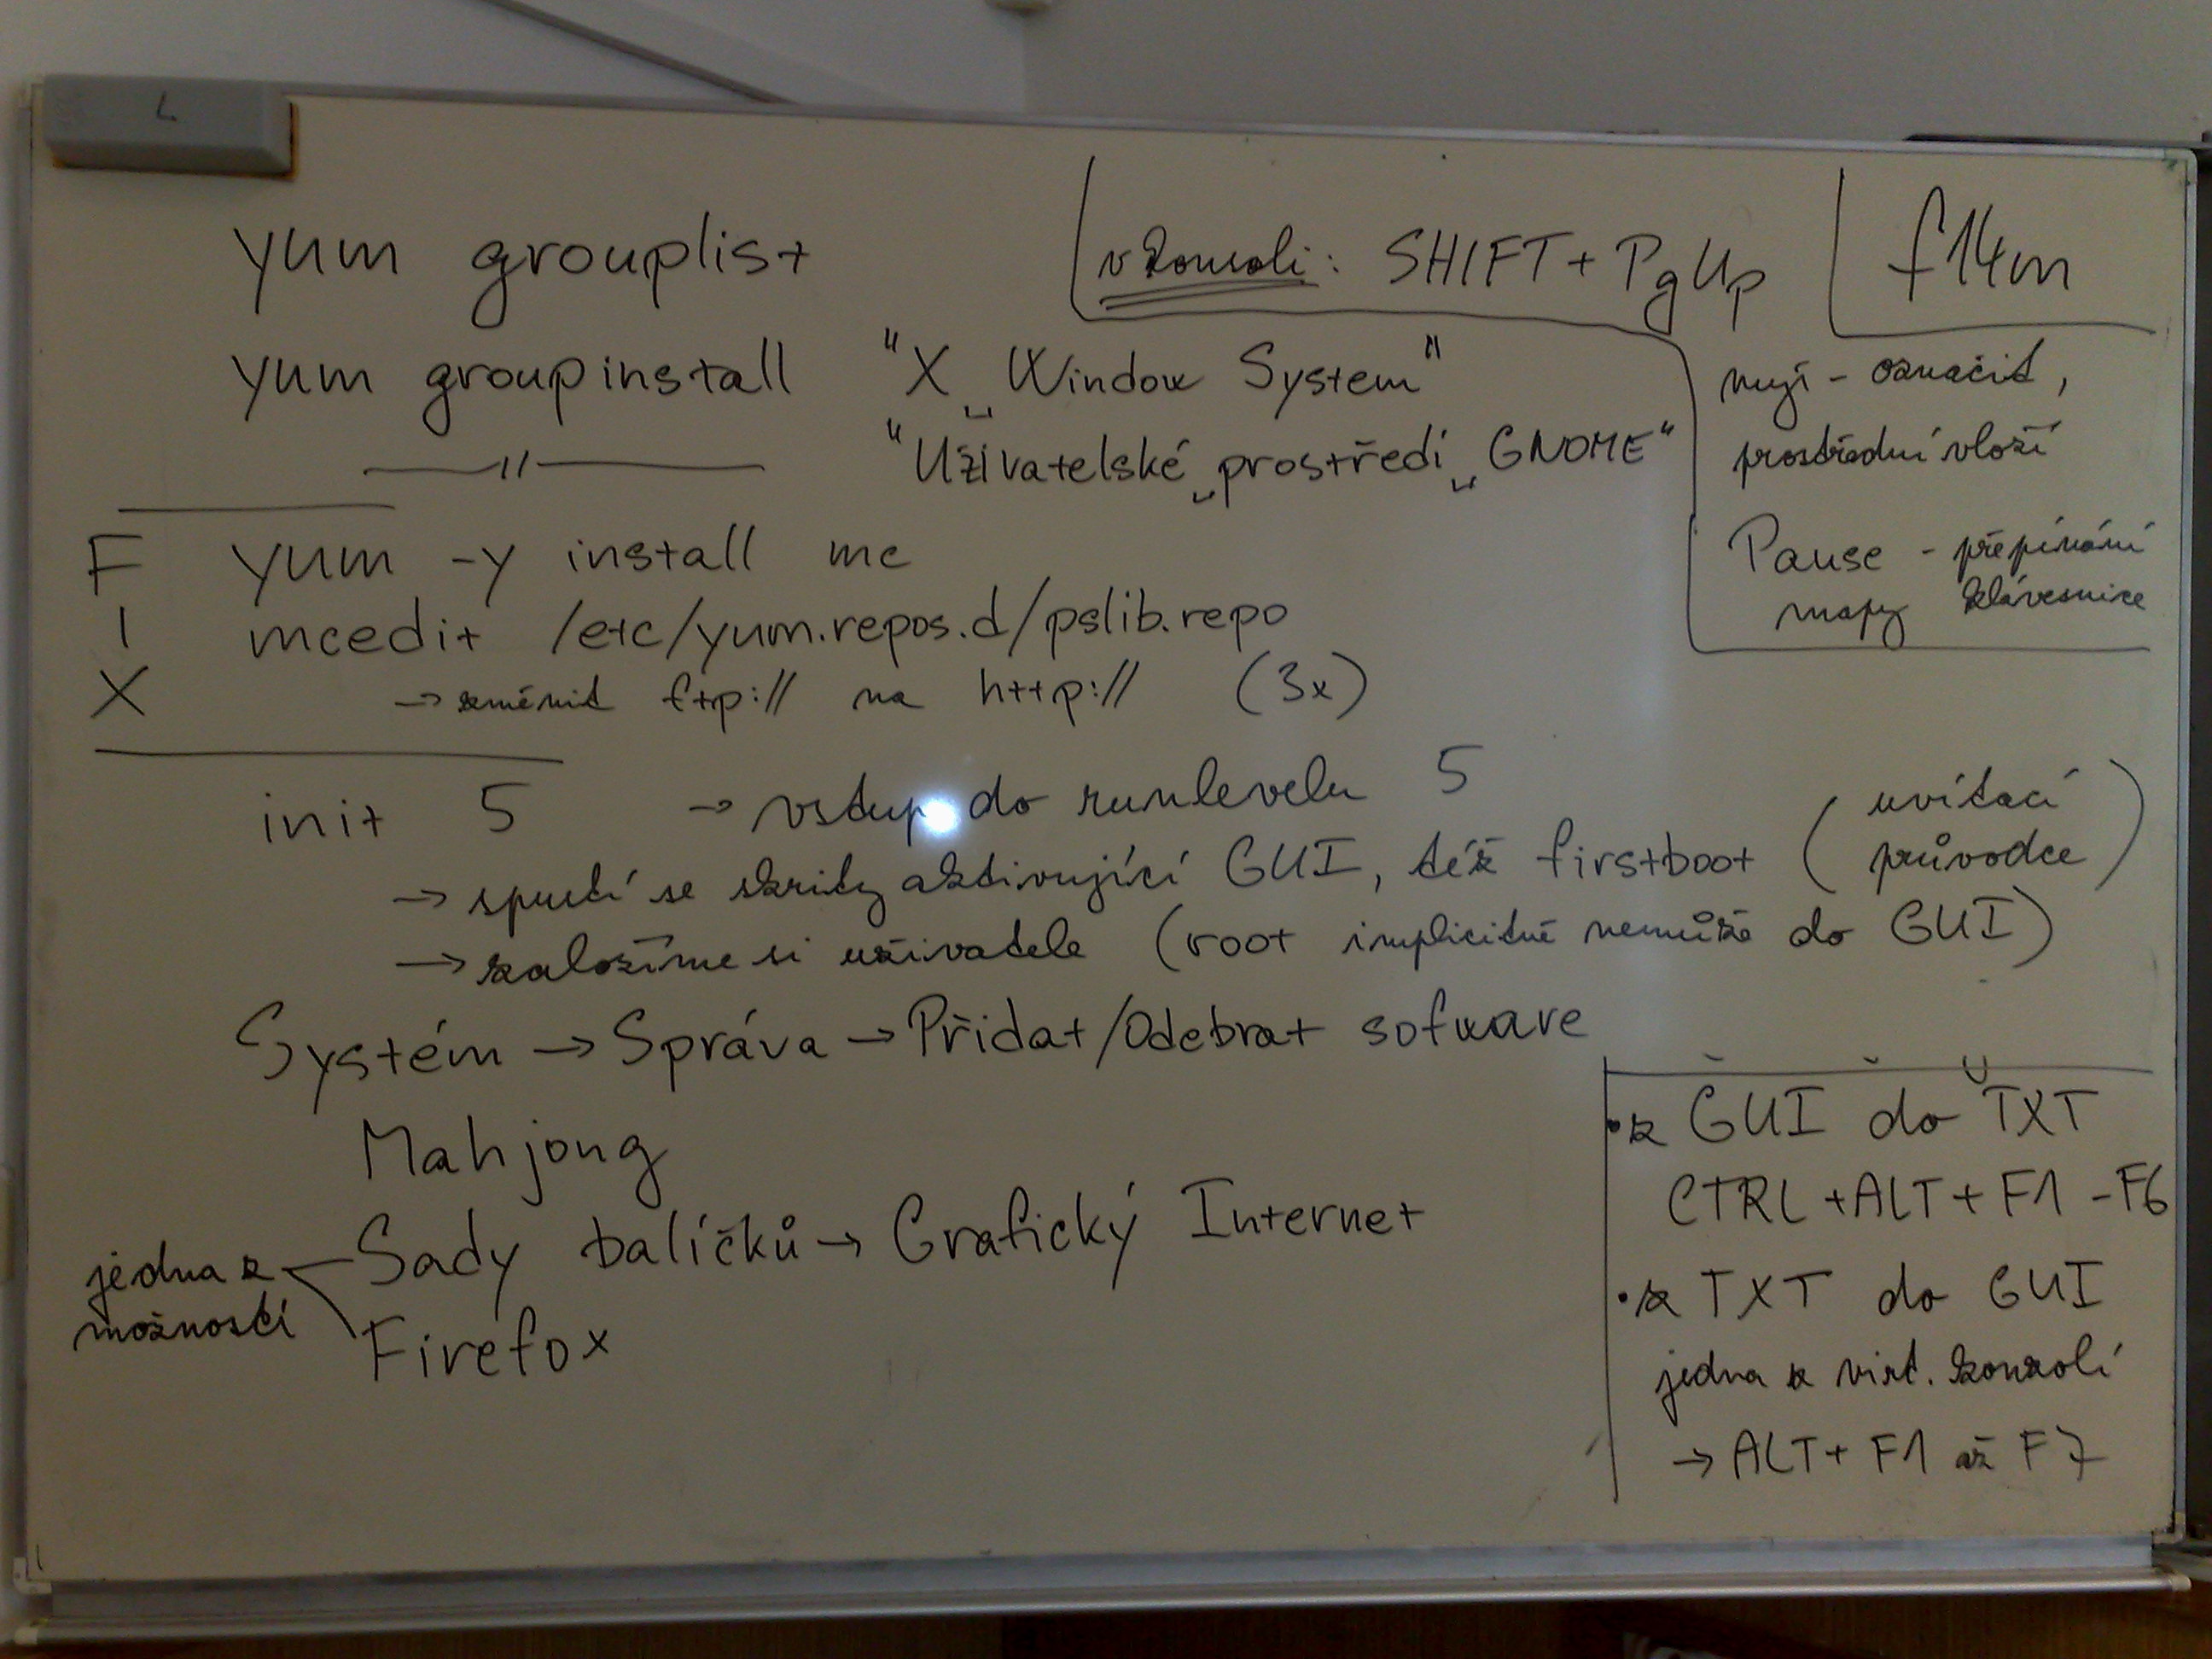 yum grouplist
v konsoli: SHIFT + PgUp
f14m
yum groupinstall "X Window System"
myší - označit,
prostřední vloží
—〃— "Uživatelské prostředí GNOME"
Pause - přepínání
mapy klávesnice
F I X
yum -y install mc
mcedit /etc/yum.repos.d/pslib.repo
→ změnit ftp:// na http:// (3x)
init 5 → vstup do runlevelu 5
→ spustí se skripty aktivující GUI, též firstboot (uvítací průvodce)
→ založíme si uživatele (root implicitně nemůže do GUI)
Systém → Správa → Přidat/Odebrat sofware
Mahjong
Sady balíčků → Grafický Internet
jedna z
možností
Firefox
• z GUI do TXT
CTRL + ALT + F1 - F6
• z TXT do GUI
jedna z virt. konzolí
→ ALT + F1 až F7